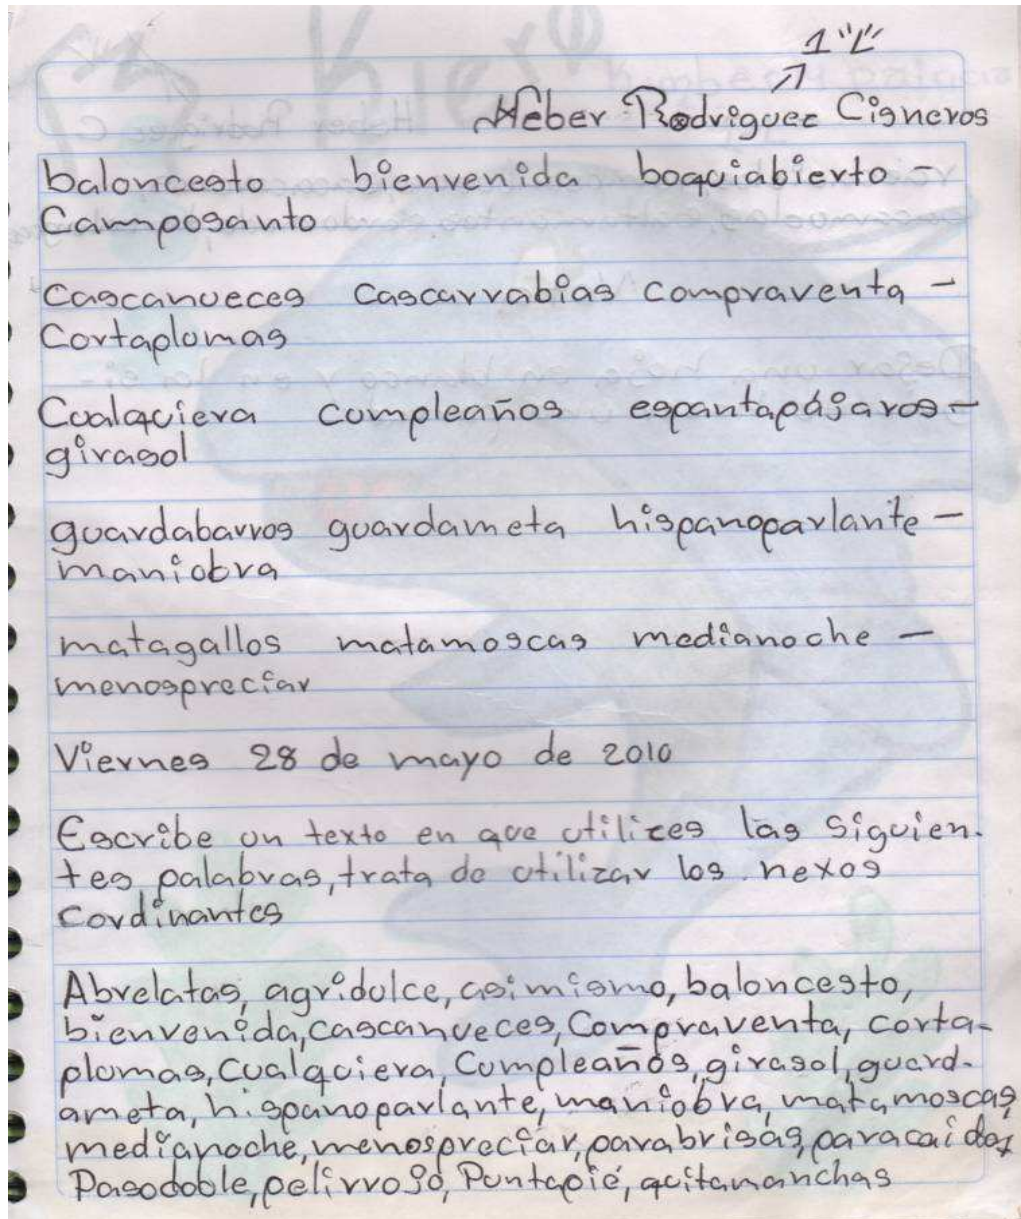 1 "L"
Heber Rodriguez Cisneros
baloncesto bienvenida boquiabierto -
Camposanto
Cascanueces Cascarrabias compraventa -
Cortaplumas
Cualquiera cumpleaños espantapájaros -
girasol
guardabarros guardameta hispanoparlante -
maniobra
matagallos matamoscas medianoche -
menospreciar
Viernes 28 de mayo de 2010
Escribe un texto en que utilizes las siguien-
tes palabras, trata de utilizar los nexos
Cordinantes
Abrelatas, agridulce, asimismo, baloncesto,
bienvenida, cascanueces, Compraventa, corta-
plumas, Cualquiera, Cumpleaños, girasol, guard-
ameta, hispanoparlante, maniobra, matamoscas,
medianoche, menospreciar, parabrisas, paracaidos
Pasodoble, pelirrojo, Puntapié, quitamanchas